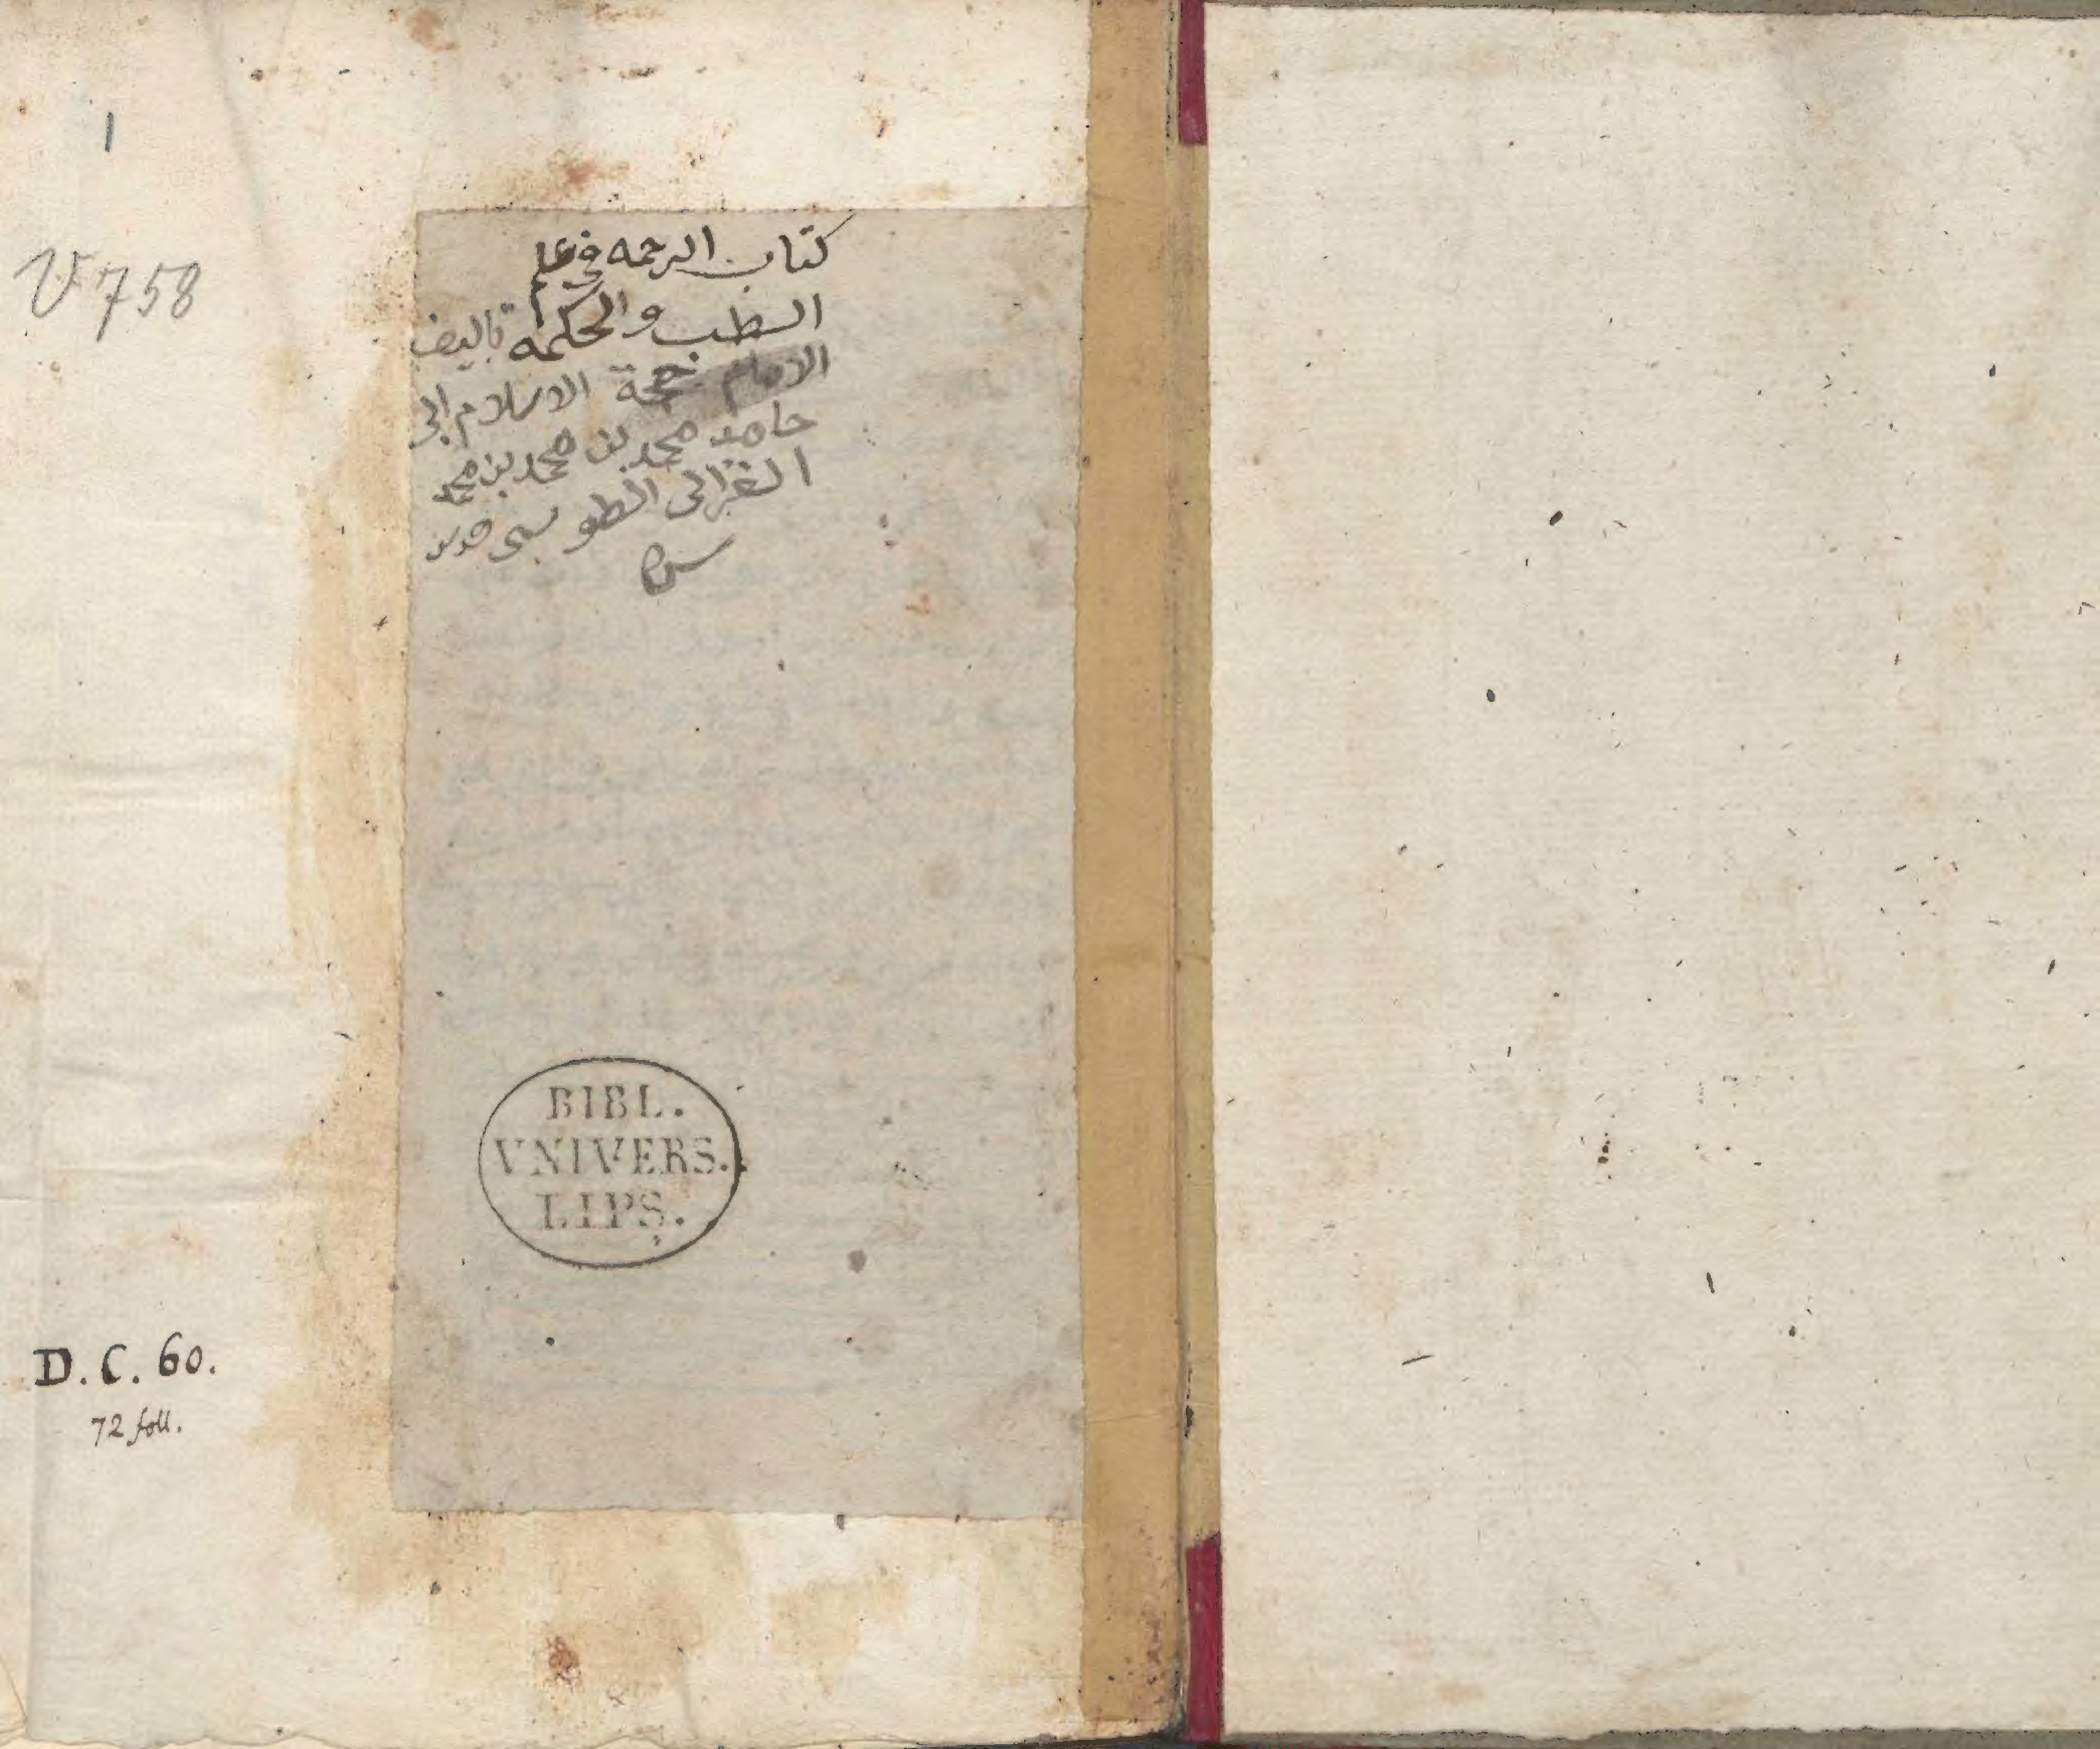 1
V 758
كتاب الرحمه في علم
الطب والحكمه تاليف
الامام حجة الاسلام ابى
حامد محمد بن محمد بن محمد
الغزالى الطوسى قدس
سره
BIBL.
VNIVERS.
LIPS.
D.C. 60.
72 foll.